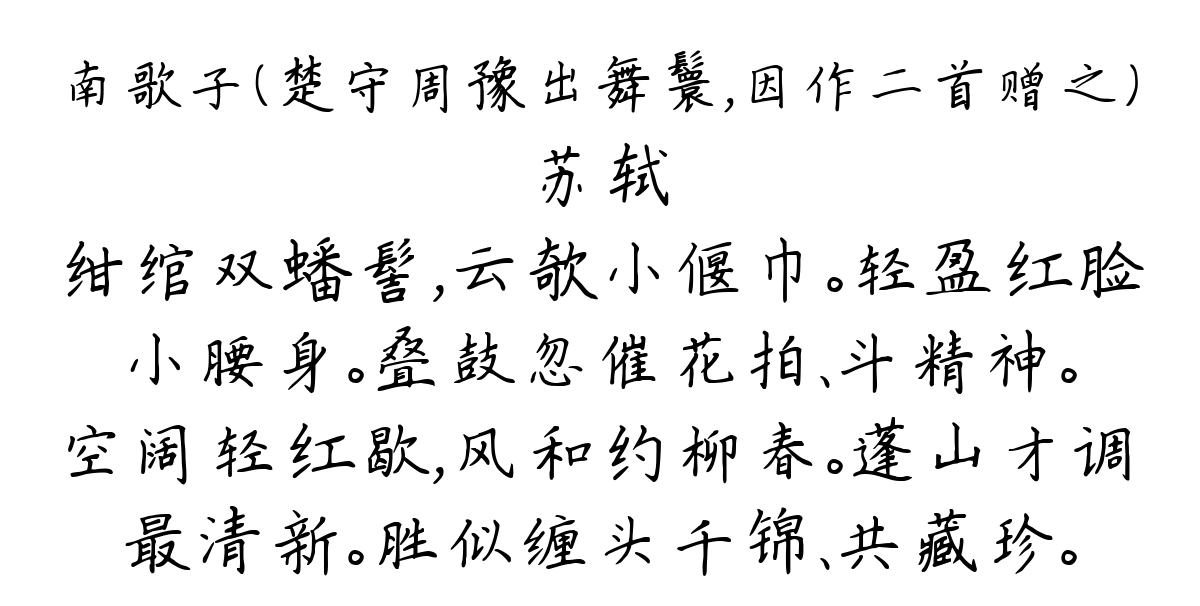 南歌子(楚守周豫出舞鬟,因作二首赠之)
苏轼
绀绾双蟠髻,云欹小偃巾。轻盈红脸
小腰身。叠鼓忽催花拍、斗精神。
空阔轻红歇,风和约柳春。蓬山才调
最清新。胜似缠头千锦、共藏珍。